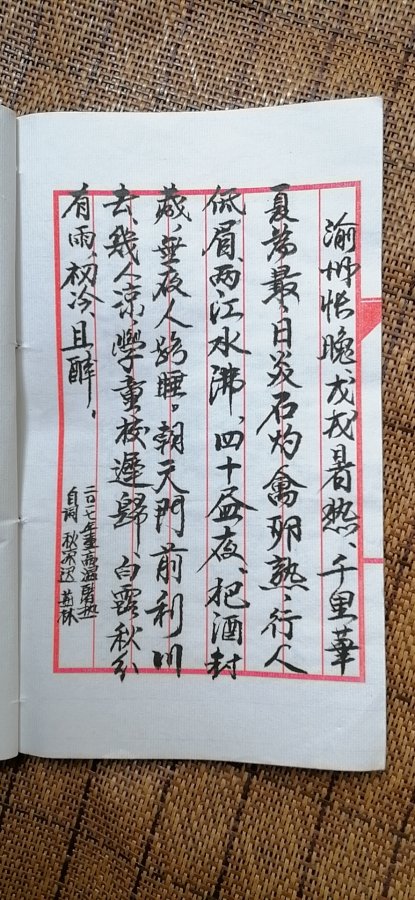 渝州怅晚、戊戌暑热、千里華
夏為最、日炎石灼禽卵熟、行人
低眉、两江水沸、四十昼夜、把酒封
藏、垂夜人难睡。朝天門前利川
去、幾人凉、學童校遲歸、白露秋分
有雨、初冷且醉、
二〇一七年重雨温暑热
自词 秋凉迟